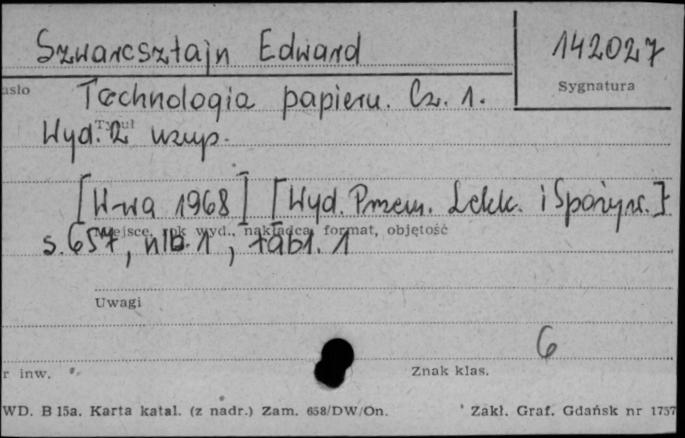 Szwarcsztajn Edward
142027
asło
Sygnatura
Technologia papieru. Cz. 1.
Tytuł
Wyd. 2 uzup.
[W-wa 1968] [Wyd. Przem. Lekk. i Spożyw.]
Miejsce, rok wyd., nakładca, format, objętość
s. 657, nlb. 1, tabl. 1
Uwagi
6
r inw.
Znak klas.
WD. B 15a. Karta katal. (z nadr.) Zam. 658/DW/On.
Zakł. Graf. Gdańsk nr 1757